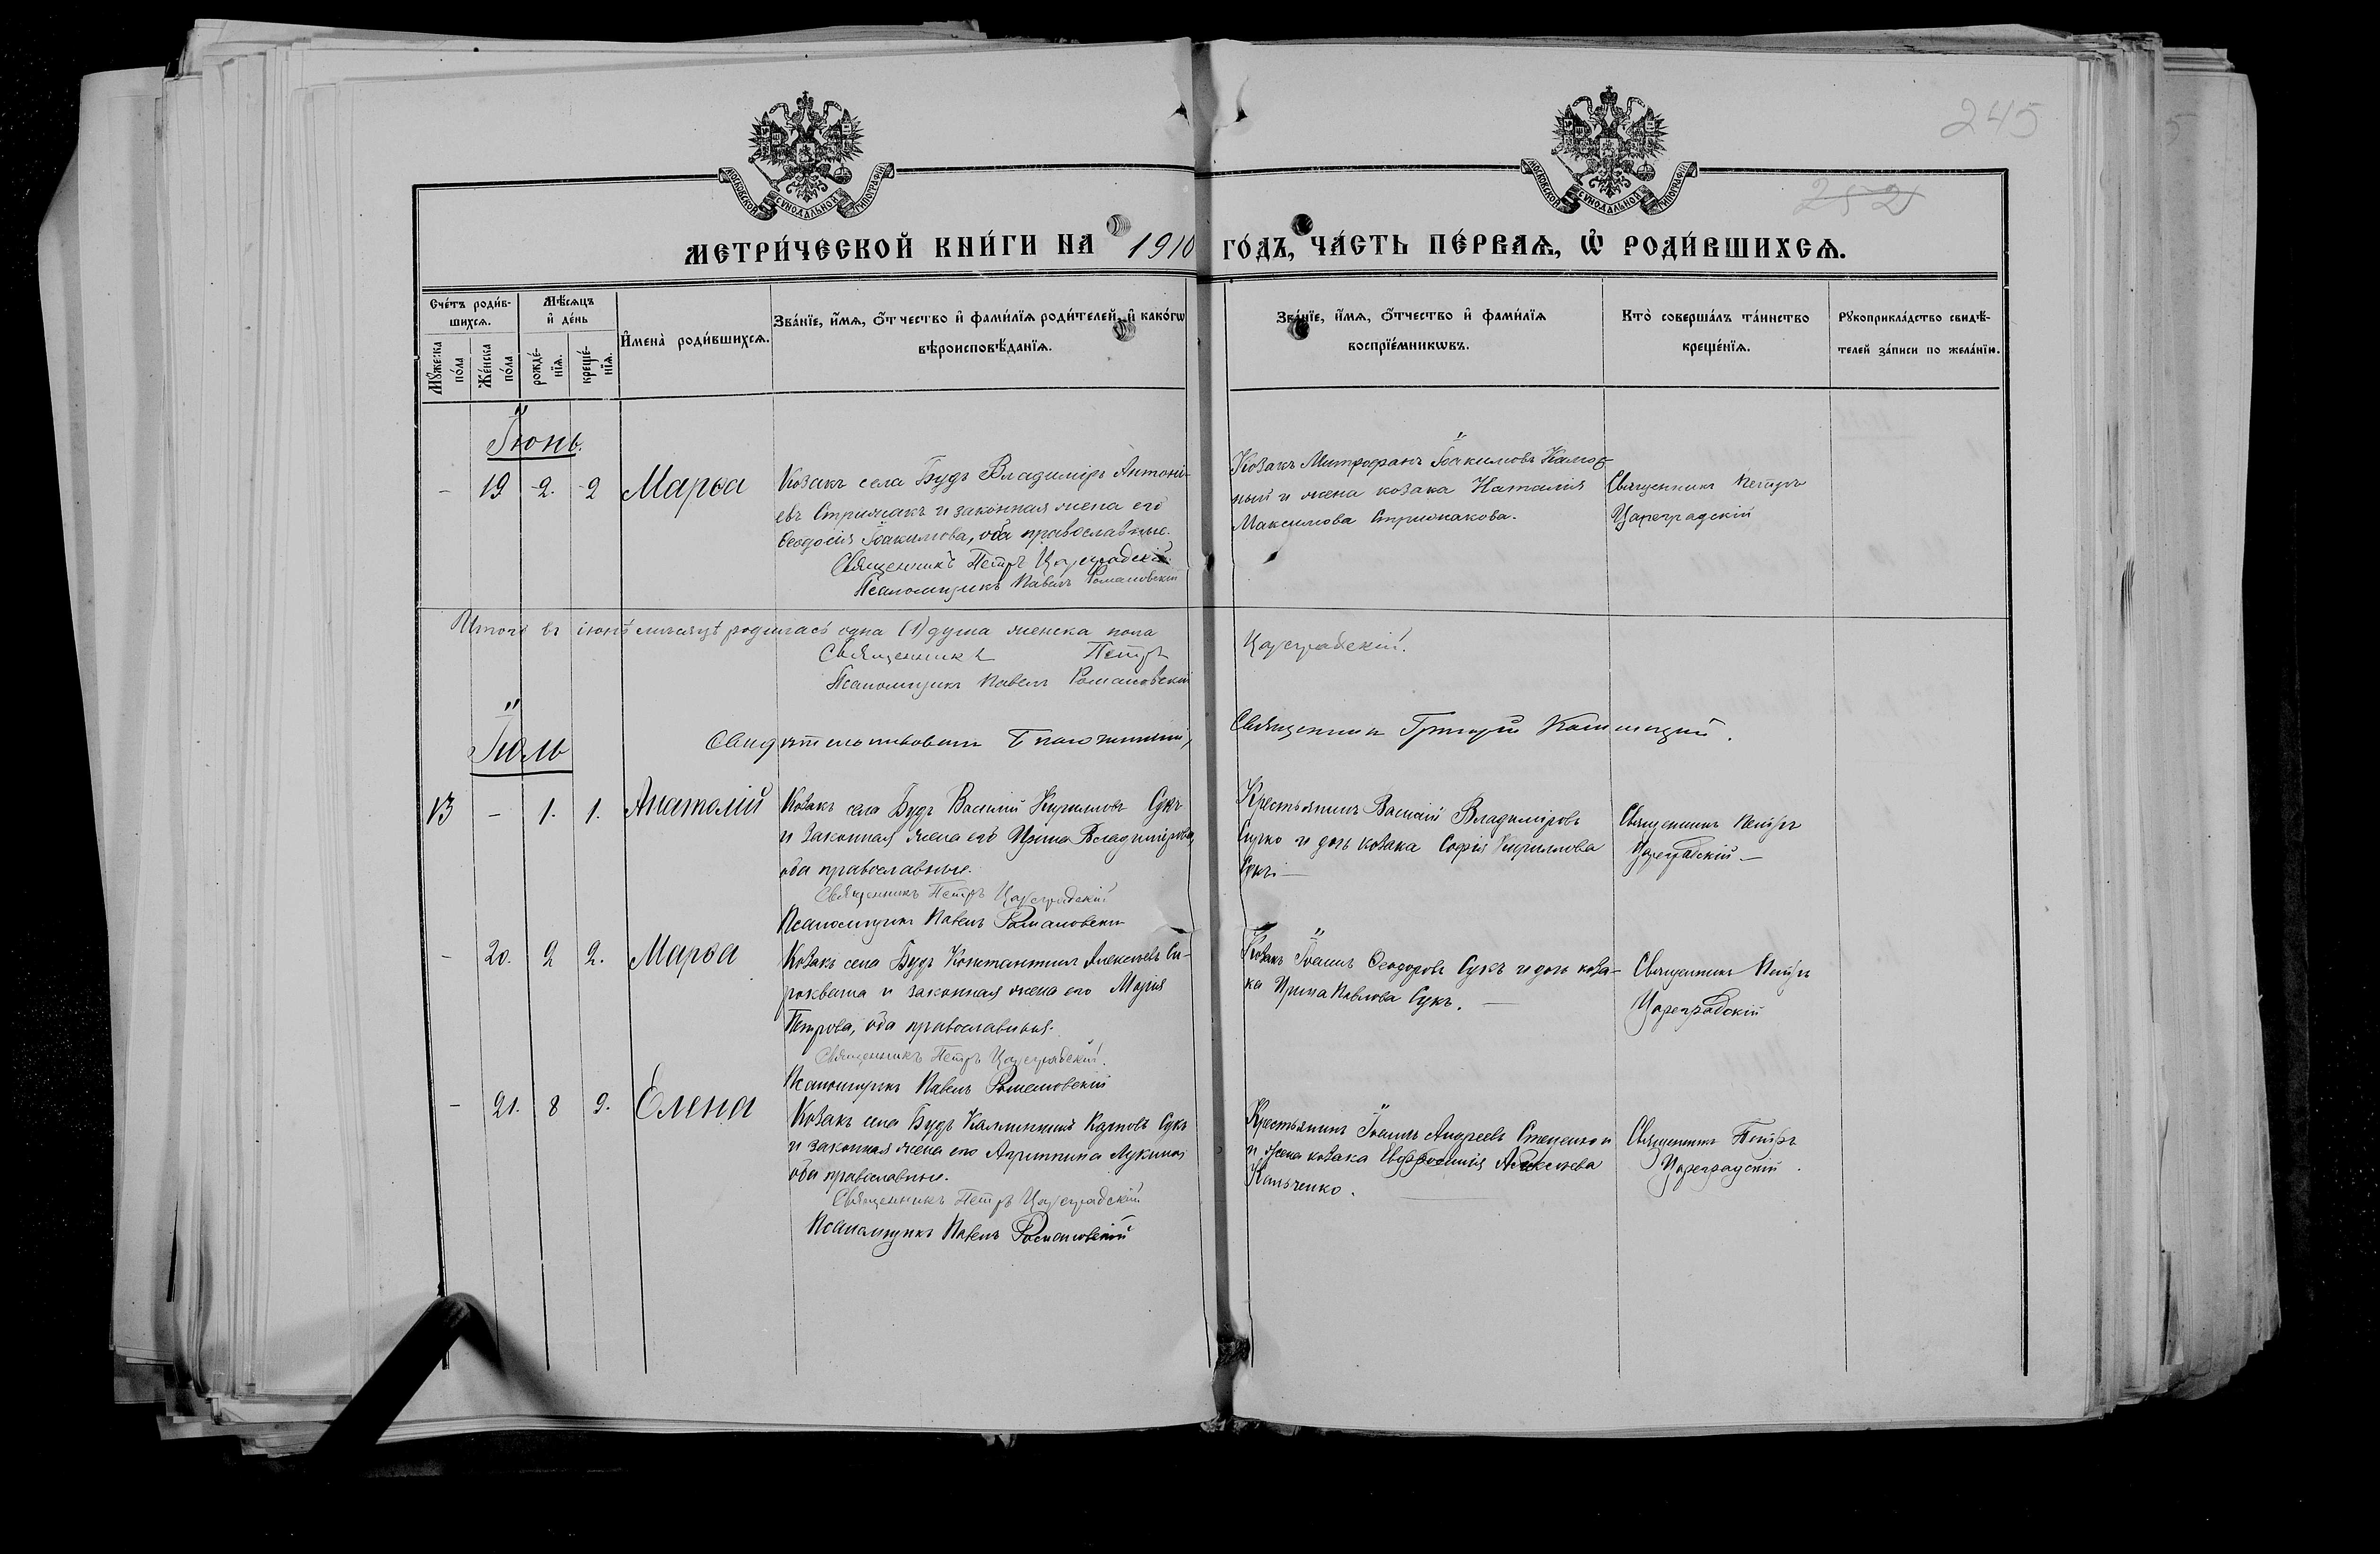 245
252
МОСКОВСКОЙ СѴНОДАЛЬНОЙ ТИПОГРАФІИ
МОСКОВСКОЙ СѴНОДАЛЬНОЙ ТИПОГРАФІИ
МЕТРИ́ЧЕСКОЙ КНИ́ГИ НА 1910 ГО́ДЪ, ЧА́СТЬ ПЕ́РВАѦ, Ѡ҆ РОДИ́ВШИХСѦ.
Сче́тъ роди́в-
шихсѧ.
Мꙋжеска по́ла
Же́нска по́ла
Мѣ́сѧцъ
и҆ де́нь
рожде́-
нїѧ.
креще́-
нїѧ.
И҆мена̀ роди́вшихсѧ.
Зва́нїе, и҆́мѧ, о҆́тчество и҆ фами́лїѧ роди́телей, и҆ како́гѡ
вѣроисповѣ́данїѧ.
Зва́нїе, и҆́мѧ, о҆́тчество и҆ фами́лїѧ
воспрїе́мникѡвъ.
Кто̀ соверша́лъ та́инство
креще́нїѧ.
Рꙋкоприкла́дство свидѣ́-
телей за́писи по жела́нїю.
Іюнь.
- 19 2. 2 Марѳа
Козакъ села Будъ Владиміръ Антоні-
евъ Стрижакъ и законная жена его
Ѳеодосія Іоакимова, оба православные.
Священникъ Петръ Цареградскій
Псаломщикъ Павелъ Романовскій
Козакъ Митрофанъ Іоакимовъ
ный и жена козака Наталія
Максимова Стрижакова.
Священникъ Петръ
Цареградскій
Итого въ іюнѣ мѣсяцѣ родилась одна (1) душа женска пола
Священникъ Петръ Цареградскій.
Псаломщикъ Павелъ Романовскій
Іюль
Свидѣтельствовалъ Благочинный, Священникъ Григорій
13 - 1. 1. Анатолій
Козакъ села Будъ Василій Кирилловъ Сукъ
и законная жена его Ирина Владимірова,
оба православные.
Священникъ Петръ Цареградскій
Псаломщикъ Павелъ Романовскій
Крестьянинъ Василій Владиміровъ
и дочь козака Софія Кириллова
Сукъ. —
Священникъ Петръ
Цареградскій —
- 20. 2 2. Марѳа
Козакъ села Будъ Константинъ Алексѣевъ Си-
рокваша и законная жена его Марія
Петрова, оба православныя.
Священникъ Петръ Цареградскій.
Псаломщикъ Павелъ Романовскій
Козакъ Іоаннъ Ѳеодоровъ Сукъ и дочь коза-
ка Ирина Павлова Сукъ. —
Священникъ Петръ
Цареградскій
- 21. 8 9. Елена
Козакъ села Будъ Каллиникъ Карповъ Сукъ
и законная жена его Агриппина Лукина
оба православные.
Священникъ Петръ Цареградскій
Псаломщикъ Павелъ Романовскій
Крестьянинъ Іоаннъ Андреевъ Степенко
и жена козака Евфросинія Алексѣева
Кальченко.
Священникъ Петръ
Цареградскій.